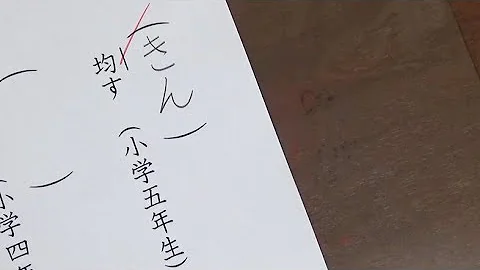 均す（きん）
（小学五年生）
（　）
小学四年